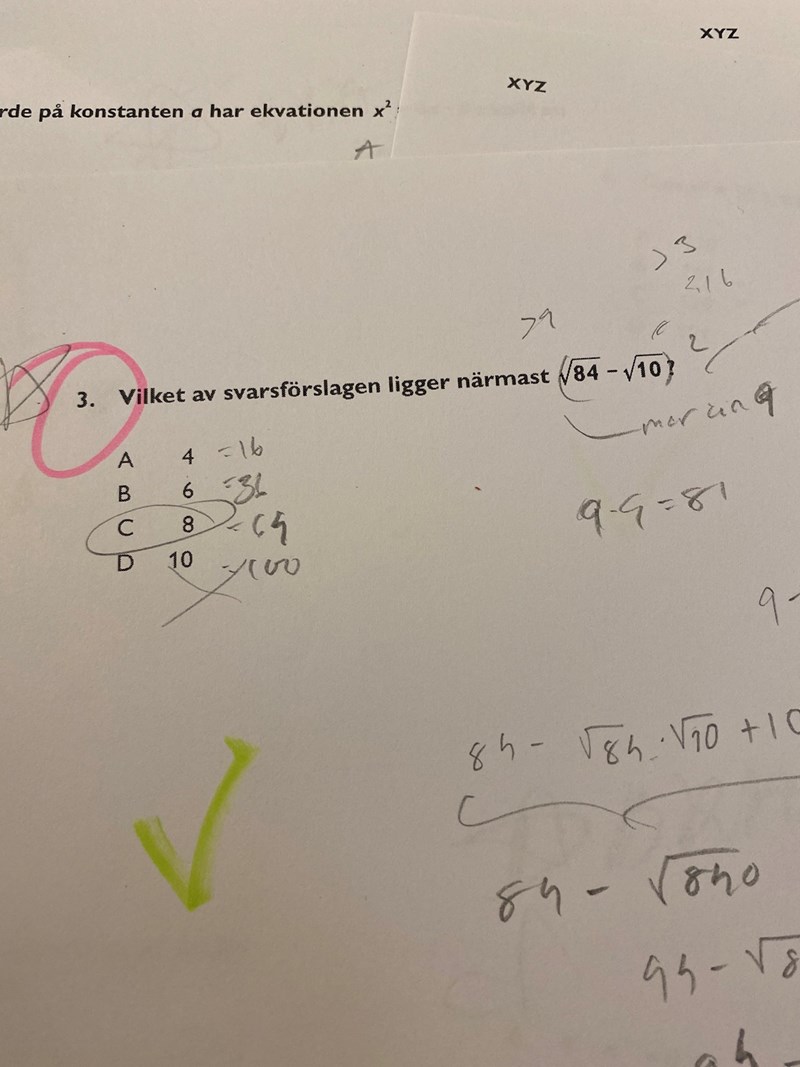 XYZ
XYZ
rde på konstanten a har ekvationen x²
A
>3
2,16
>9
2
3. Vilket av svarsförslagen ligger närmast (√84 − √10)?
mer än 9
A 4 =16
B 6 =36
C 8 =64
D 10 =100
9·9=81
9-
84 - √84·√10 + 10
84 - √840
94 - √8